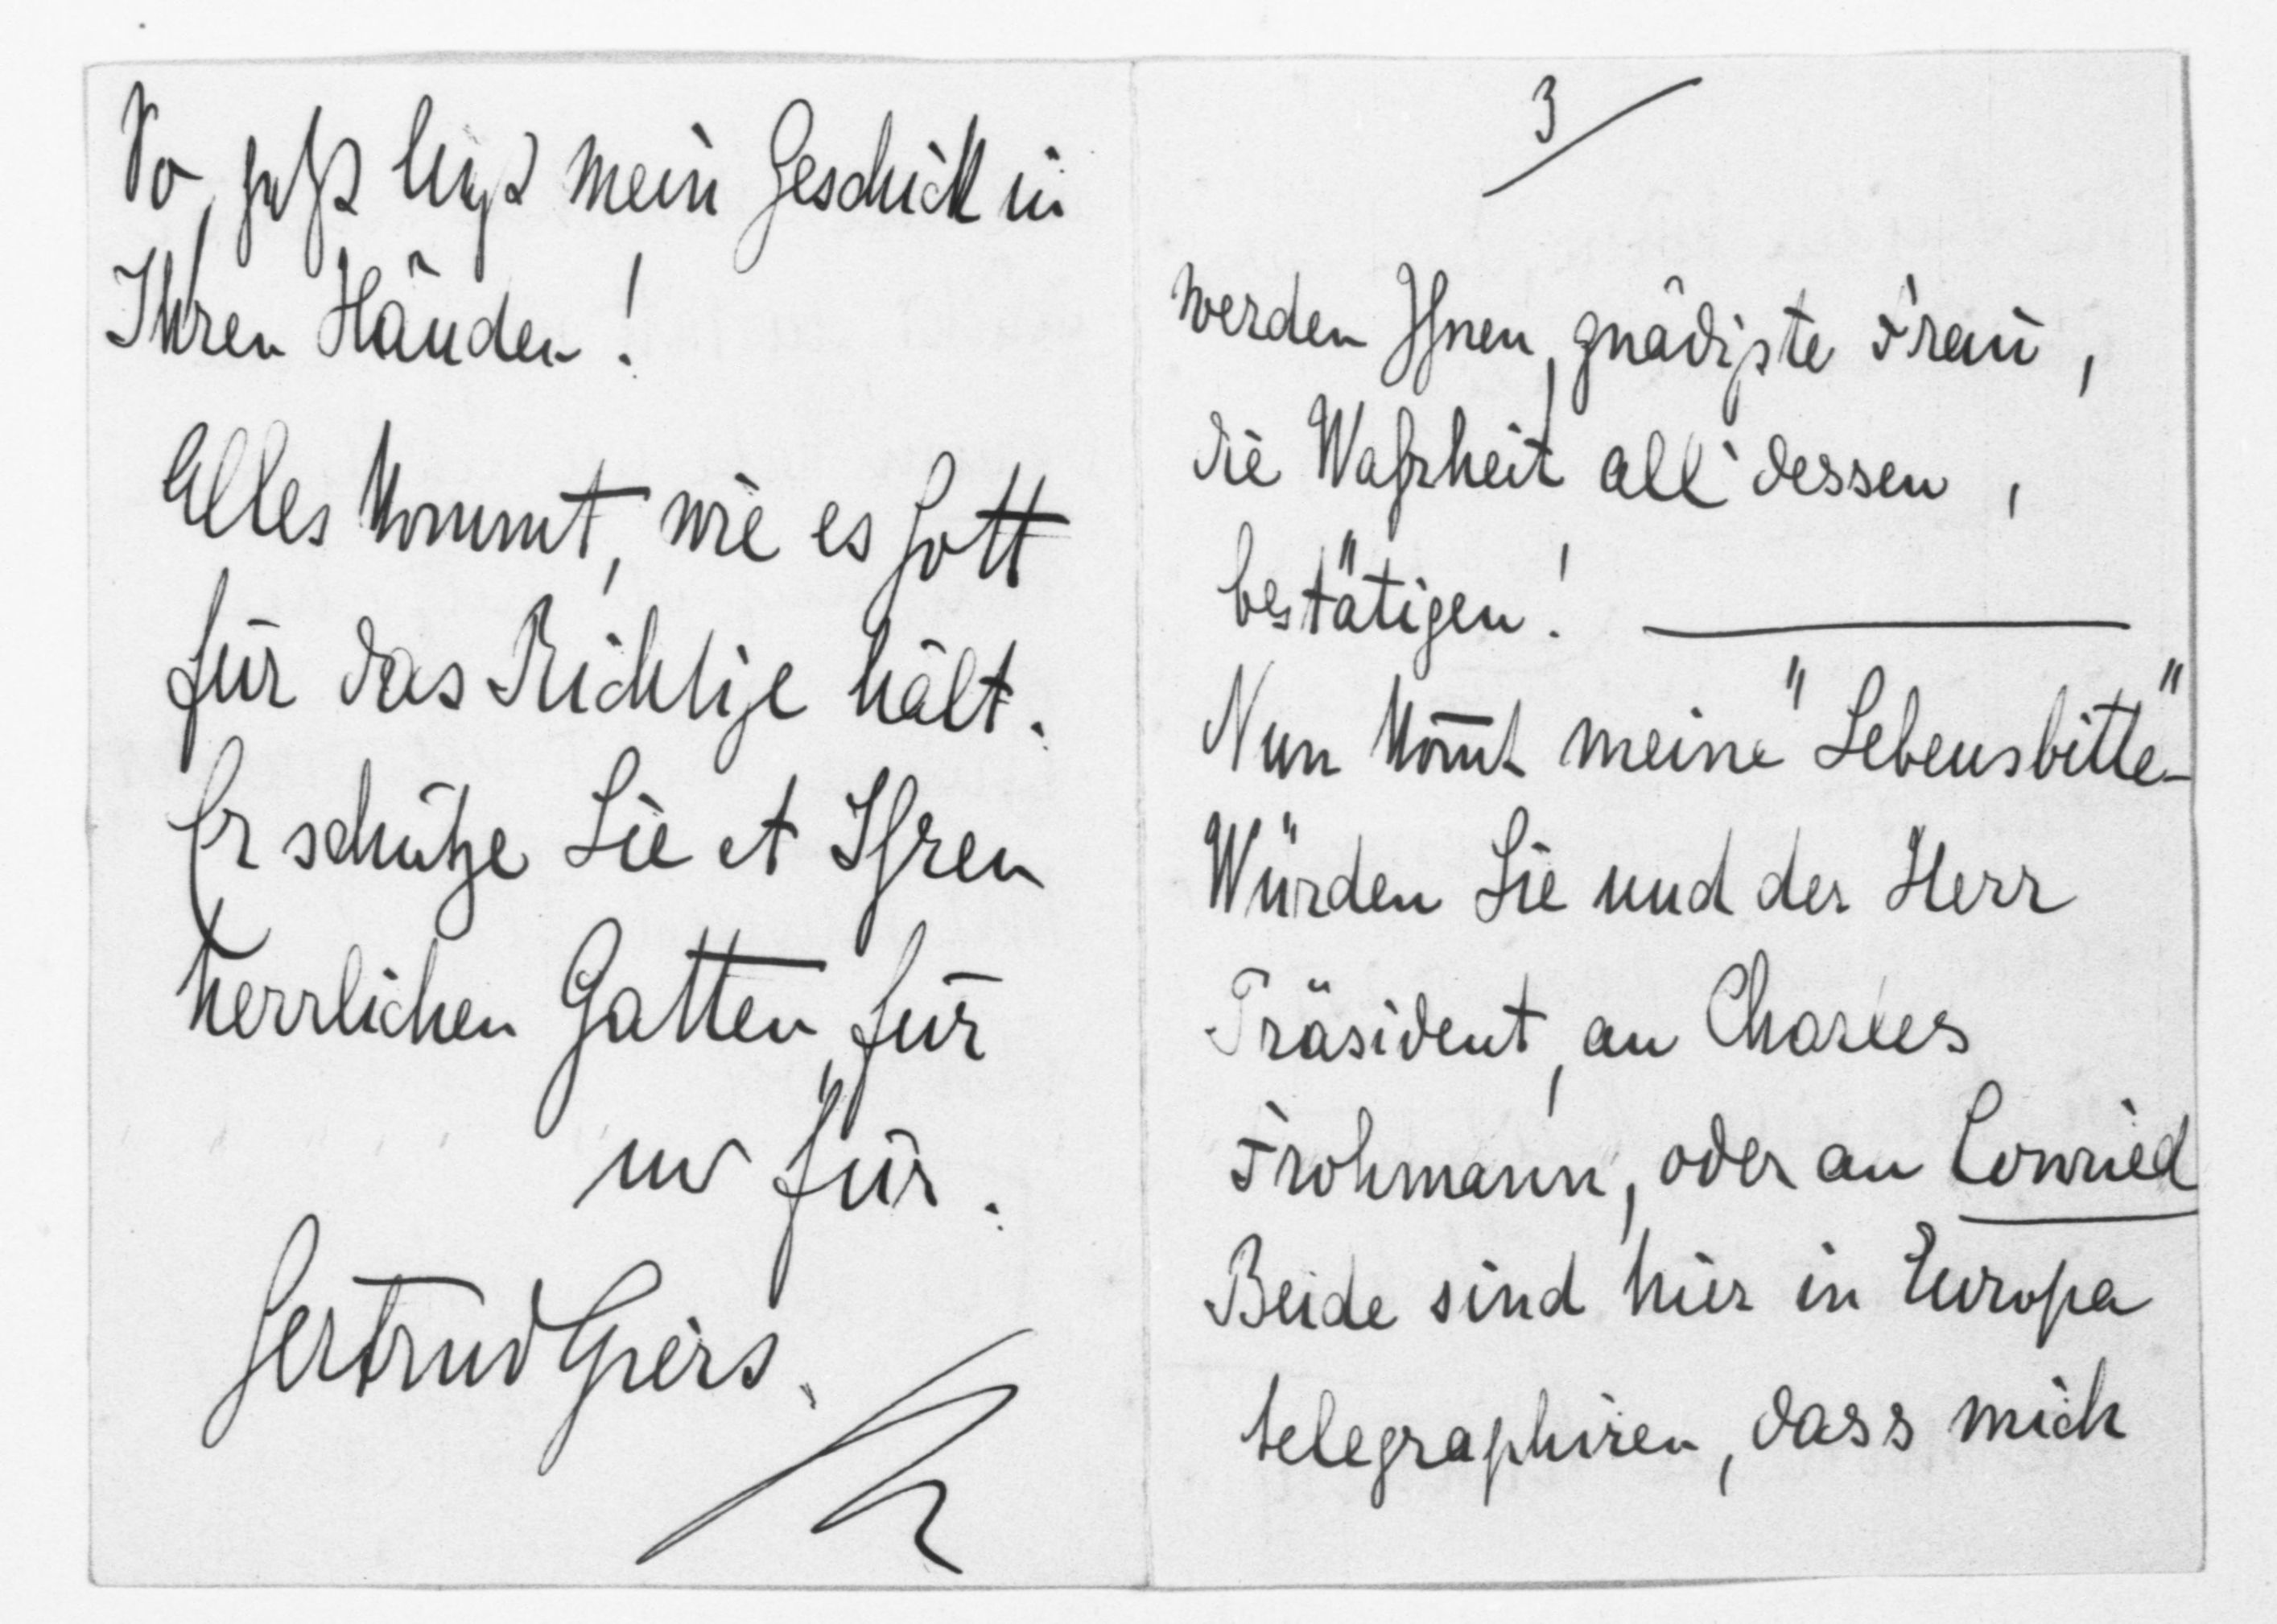 So, jetzt liegt mein Geschick in
Ihren Händen!
Alles kommt, wie es Gott
für das Richtige hält.
Er schütze Sie et Ihren
herrlichen Gatten für
u für.
Gertrud Giers.
3
werden Ihnen, gnädigste Frau,
die Wahrheit all' dessen,
bestätigen!
Nun kom̅t meine "Lebensbitte"
Würden Sie und der Herr
Präsident, an Charles
Frohmann, oder an Conried
Beide sind hier in Europa
telegraphiren, dass mich